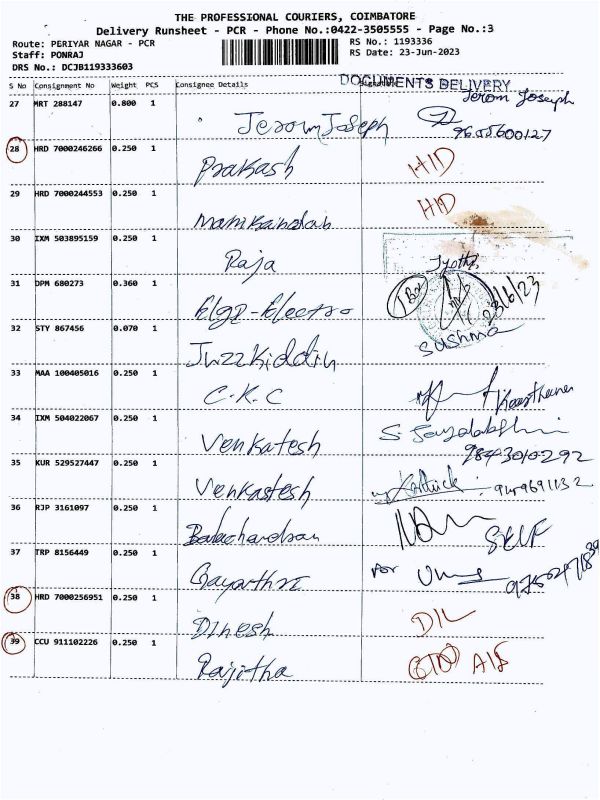 THE PROFESSIONAL COURIERS, COIMBATORE
Delivery Runsheet - PCR - Phone No.:0422-3505555 - Page No.:3
Route: PERIYAR NAGAR - PCR
RS No.: 1193336
Staff: PONRAJ
RS Date: 23-Jun-2023
DRS No.: DCJB119333603
DOCUMENTS DELIVERY
S No Consignment No Weight PCS Consignee Details
27 MRT 288147 0.800 1 Jerom Joseph Jerom Joseph
28 HRD 7000246266 0.250 1 Prakash HID
29 HRD 7000244553 0.250 1 Manikandan HID
30 IXM 503895159 0.250 1 Raja Jyothi
31 DPM 680273 0.360 1 Elgi-Electro 23/6/23
32 STY 867456 0.070 1 Juzzkiddin Sushma
33 MAA 100405016 0.250 1 C.K.C
34 IXM 504022067 0.250 1 Venkatesh 9843010292
35 KUR 529527447 0.250 1 Venkastesh
36 RJP 3161097 0.250 1 Balachandran SELF
37 TRP 8156449 0.250 1 Gayarthri For Uma
38 HRD 7000256951 0.250 1 Dinesh DIL
39 CCU 911102226 0.250 1 Rajitha